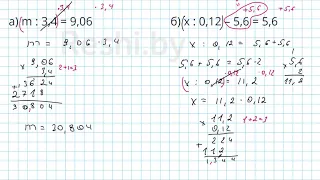 ·3,4 ·3,4
а) m : 3,4 = 9,06
m = 9,06 · 3,4
× 9,06
3,4
2+1=3
+ 3624
2718
30,804
m = 30,804
+5,6 +5,6
б) (x : 0,12) − 5,6 = 5,6
x : 0,12 = 5,6 + 5,6
x : 0,12 = 5,6 · 2
× 5,6
2
11,2
·0,12 ·0,12
x : 0,12 = 11,2
x = 11,2 · 0,12
× 11,2
0,12
1+2=3
+ 224
112
1,344
Reshi.by